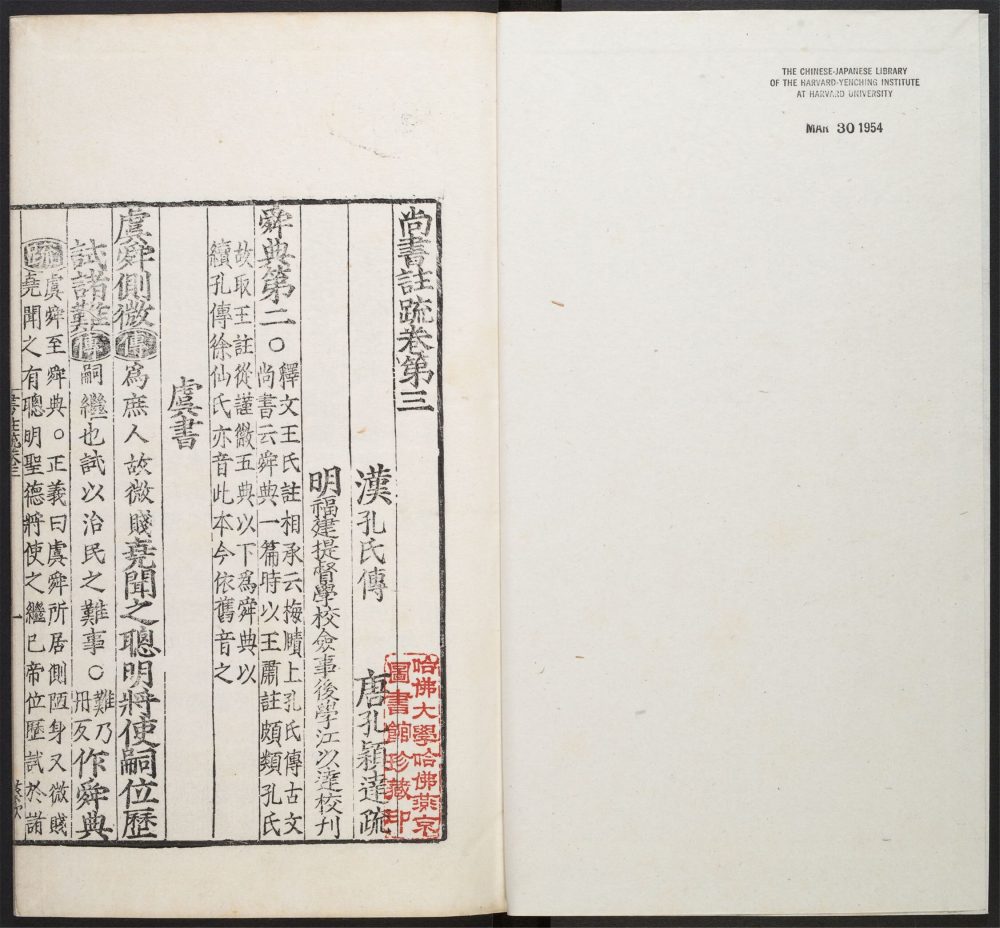 THE CHINESE-JAPANESE LIBRARY
OF THE HARVARD-YENCHING INSTITUTE
AT HARVARD UNIVERSITY
MAR 30 1954
尚書註疏卷第三
漢孔氏傳 唐孔穎達疏
明福建提督學校僉事後學江以達校刊
舜典第二○釋文王氏註相承云梅賾上孔氏傳古文
尚書云舜典一篇時以王肅註頗類孔氏
故取王註從謹徽五典以下爲舜典以
續孔傳徐仙氏亦音此本今依舊音之
虞書
虞舜側微傳爲庶人故微賤堯聞之聰明將使嗣位歷
試諸難傳嗣繼也試以治民之難事○難乃
丹反作舜典
疏虞舜至舜典。正義曰虞舜所居側陋身又微賤
堯聞之有聰明聖德將使之繼己帝位歷試於諸
一
哈佛大學哈佛燕京
圖書館珍藏印